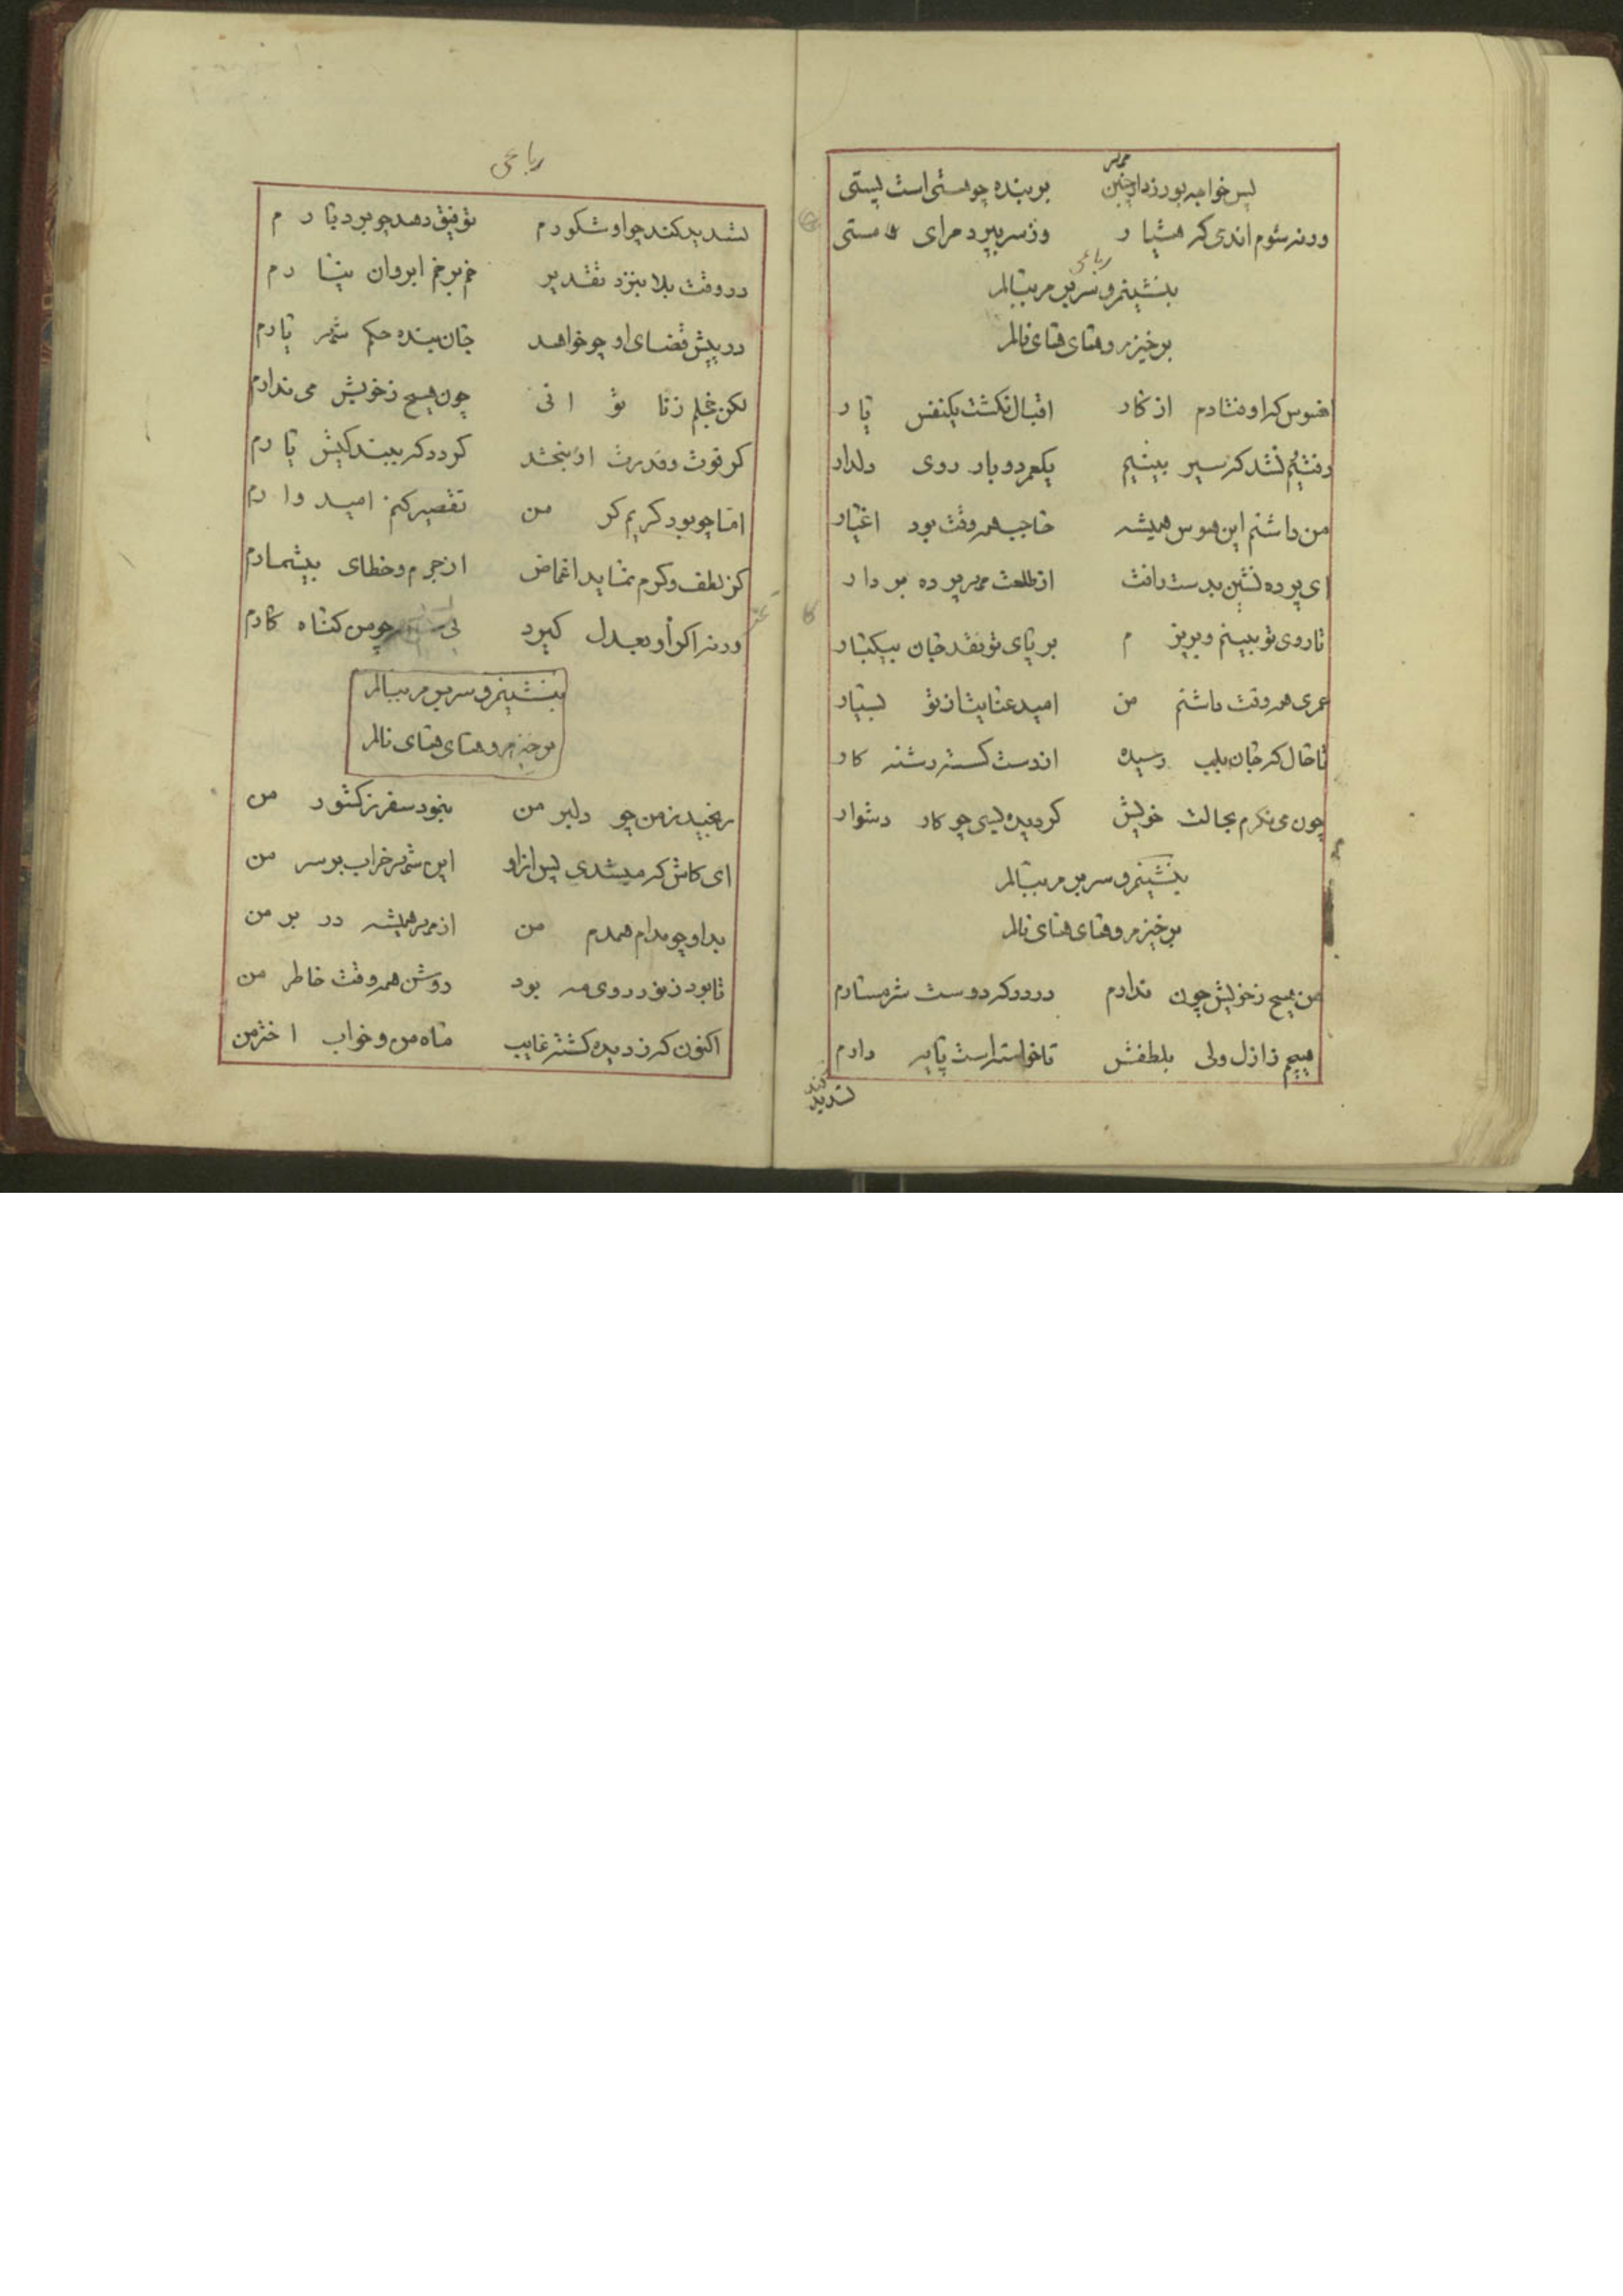 پس خواجه بورزد ار چنین بر بنده چو هستی است پستی
ورنه شوم اندی که هشیار وز سر ببرد مرای مستی
رباعی
بنشینم و سر بسر بنالم
برخیزم و های های نالم
افسوس که اوفتادم از کار اقبال نگشت یکنفس یار
رفتیم نشد که سیر بینیم یکعمر دو بار روی دلدار
من داشتم این هوس همیشه حاجب همه وقت بود اغیار
ای پرده نشین بدست رافت از طلعت پرده بردار
تا روی تو بینم و بریزم بر پای تو نقد جان بیکبار
عمری همه وقت داشتم من امید عنایت از تو بسیار
تا حال که جان بلب رسیده از دست گسسته رشته کار
چون می نگرم بحالت خویش گردیده بسی چو کار دشوار
بنشینم و سر بسر بنالم
برخیزم و های های نالم
من هیچ ز خویش چون ندارم در درگه دوست شرمسارم
هیچم ز ازل ولی بلطفش تا خواسته است پایه دارم
کند
تشدید
رباعی
تشدید کند چو او شکورم توفیق دهد چو بردبارم
در وقت بلا بنزد تقدیر خم بر خم ابروان نیارم
در پیش قضای او چو خواهد جان بنده حکم یارم
لکن خجلم ز ناتوانی چون هیچ ز خویش می ندارم
گر قوت و قدرت او نبخشد گردد که ببند کیش یارم
اما چو بود کریم گر من تقصیر کنم امیدوارم
کز لطف و کرم نماید اغماض از جرم و خطای بیشمارم
ورنه اگر او بعدل گیرد چو من گناه کارم
بنشینم و سر بسر بنالم
برخیزم و های های نالم
رنجید ز من چو دلبر من بنمود سفر ز کشور من
ای کاش که میشدی پس از او این شهر خراب بر سر من
بد او چو مدام همدم من از مهر همیشه در بر من
تا بود ز نور روی مه بود روشن همه وقت خاطر من
اکنون که ز دیده گشته غایب ماه من و خواب اختر من